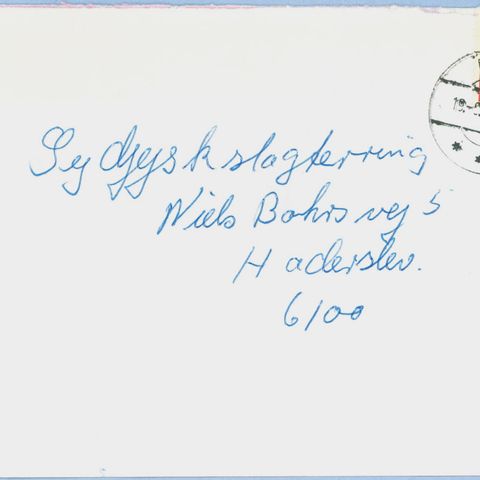 Sydjysk slagterring
Niels Bohrs vej 5
Haderslev.
6100